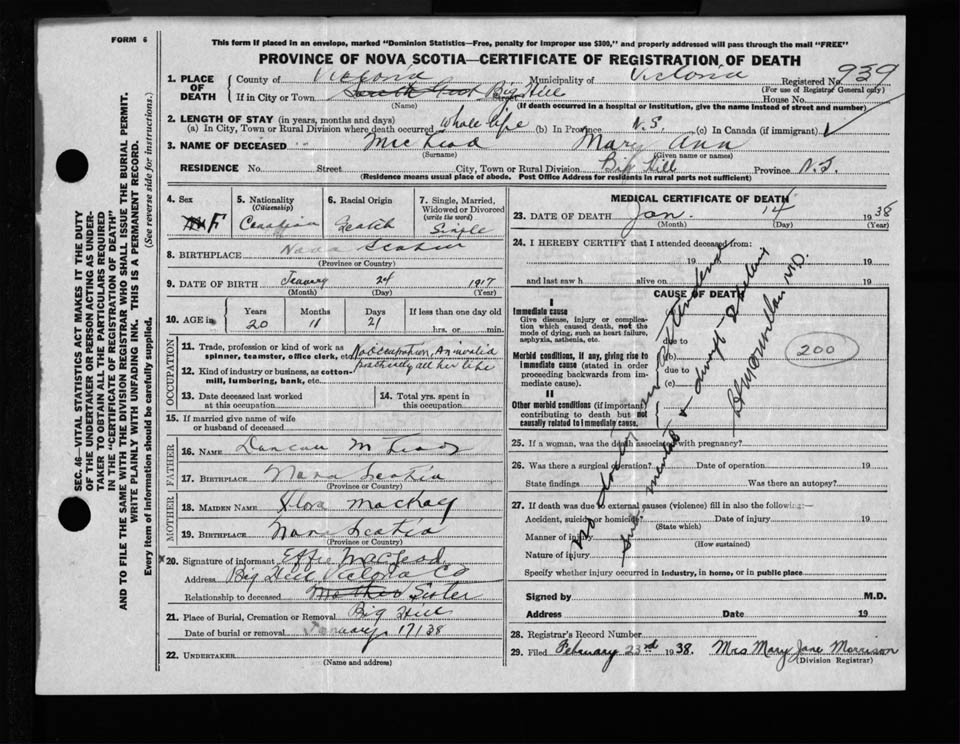 FORM 6
This form if placed in an envelope, marked "Dominion Statistics—Free, penalty for improper use $300," and properly addressed will pass through the mail "FREE"
PROVINCE OF NOVA SCOTIA—CERTIFICATE OF REGISTRATION OF DEATH
1. PLACE OF DEATH
County of Victoria Municipality of Victoria Registered No. 939
(For use of Registrar General only)
If in City or Town South Big Hill Street House No.
(Name) (If death occurred in a hospital or institution, give the name instead of street and number)
2. LENGTH OF STAY (in years, months and days)
(a) In City, Town or Rural Division where death occurred whole life (b) In Province N.S. (c) In Canada (if immigrant)
3. NAME OF DECEASED MacLeod Mary Ann
(Surname) (Given name or names)
RESIDENCE No. Street City, Town or Rural Division Big Hill Province N.S.
(Residence means usual place of abode. Post Office Address for residents in rural parts not sufficient)
SEC. 46—VITAL STATISTICS ACT MAKES IT THE DUTY
OF THE UNDERTAKER OR PERSON ACTING AS UNDER-
TAKER TO OBTAIN ALL THE PARTICULARS REQUIRED
IN THE "CERTIFICATE OF REGISTRATION OF DEATH"
AND TO FILE THE SAME WITH THE DIVISION REGISTRAR WHO SHALL ISSUE THE BURIAL PERMIT.
WRITE PLAINLY WITH UNFADING INK. THIS IS A PERMANENT RECORD.
Every item of information should be carefully supplied. (See reverse side for instructions.)
4. Sex
F
5. Nationality
(Citizenship)
Canadian
6. Racial Origin
Scotch
7. Single, Married,
Widowed or Divorced
(write the word)
Single
8. BIRTHPLACE Nova Scotia
(Province or Country)
9. DATE OF BIRTH January 24 1917
(Month) (Day) (Year)
10. AGE in Years Months Days If less than one day old
20 11 21 hrs. or min.
OCCUPATION
11. Trade, profession or kind of work as
spinner, teamster, office clerk, etc. No occupation, An invalid
practically all her life
12. Kind of industry or business, as cotton-
mill, lumbering, bank, etc.
13. Date deceased last worked
at this occupation
14. Total yrs. spent in
this occupation
15. If married give name of wife
or husband of deceased
FATHER
16. NAME Duncan McLeod
17. BIRTHPLACE Nova Scotia
(Province or Country)
MOTHER
18. MAIDEN NAME Flora
19. BIRTHPLACE Nova Scotia
(Province or Country)
20. Signature of informant Effie MacLeod
Address Big Hill Victoria Co
Relationship to deceased Mother Sister
21. Place of Burial, Cremation or Removal Big Hill
Date of burial or removal January 17/38
22. UNDERTAKER
(Name and address)
MEDICAL CERTIFICATE OF DEATH
23. DATE OF DEATH Jan. 14 1938
(Month) (Day) (Year)
24. I HEREBY CERTIFY that I attended deceased from:
19 to 19
and last saw h alive on 19
CAUSE OF DEATH
I
Immediate cause
Give disease, injury or complica-
tion which caused death, not the
mode of dying, such as heart failure,
asphyxia, asthenia, etc.
due to
Morbid conditions, if any, giving rise to
immediate cause (stated in order
proceeding backwards from im-
mediate cause).
(b)
due to
(c)
II
Other morbid conditions (if important)
contributing to death but not
causally related to immediate cause.
No doctor in attendance
200
25. If a woman, was the death associated with pregnancy?
26. Was there a surgical operation? Date of operation 19
State findings Was there an autopsy?
27. If death was due to external causes (violence) fill in also the following:—
Accident, suicide or homicide? Date of injury 19
(State which)
Manner of injury
(How sustained)
Nature of injury
Specify whether injury occurred in industry, in home, or in public place
Signed by M.D.
Address Date 19
28. Registrar's Record Number
29. Filed February 23rd 1938. Mrs Mary Jane Morrison
(Division Registrar)